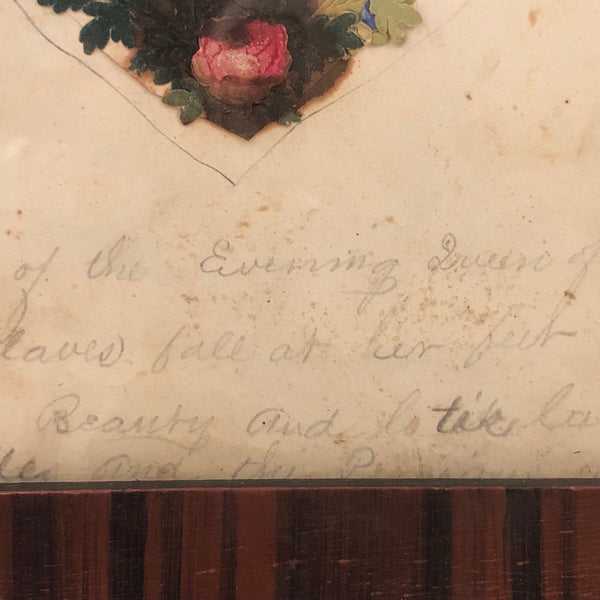 of the Evening Queen of
laves fall at her feet
Beauty and
and the